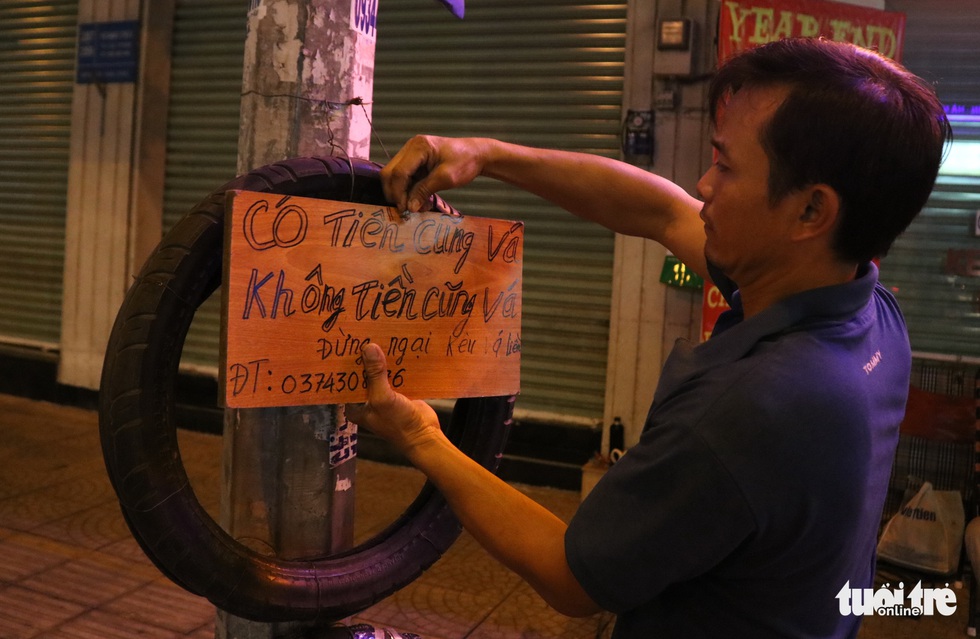 0994
YEAR END
CÓ TIỀN CŨNG VÁ
KHÔNG TIỀN CŨNG VÁ
ĐỪNG NGẠI KÊU VÁ LIỀN
ĐT: 0374308
TOMMY
tuổi trẻ
online